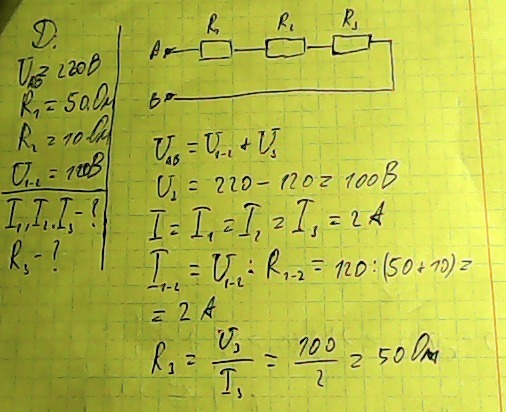 Д.
U_AB = 220 В
R₁ = 50 Ом
R₂ = 10 Ом
U₁₋₂ = 120 В
I₁, I₂, I₃ - ?
R₃ - ?
R₁ R₂ R₃
A
B
U_AB = U₁₋₂ + U₃
U₃ = 220 - 120 = 100 В
I = I₁ = I₂ = I₃ = 2 А
I₁₋₂ = U₁₋₂ : R₁₋₂ = 120 : (50 + 10) =
= 2 А
R₃ = U₃ / I₃ = 100 / 2 = 50 Ом